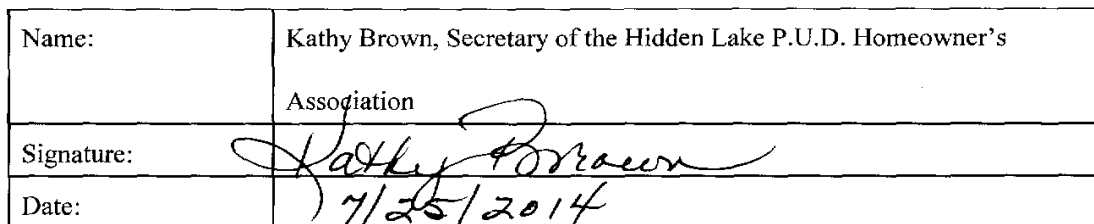 Name: Kathy Brown, Secretary of the Hidden Lake P.U.D. Homeowner's
Association
Signature: Kathy Brown
Date: 7/25/2014